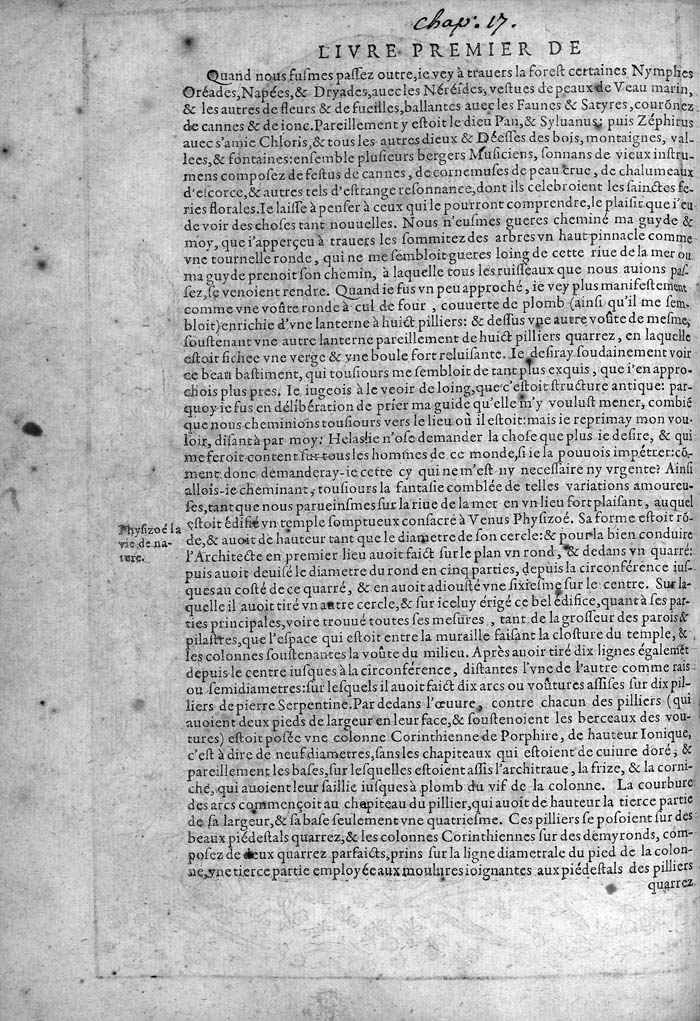 chap. 17.
LIVRE PREMIER DE
Quand nous fuſmes paſſez outre, ie vey à trauers la foreſt certaines Nymphes
Oréades, Napées, & Dryades, auec les Néréïdes, veſtues de peaux de Veau marin,
& les autres de fleurs & de fueilles, ballantes auec les Faunes & Satyres, courõnez
de cannes & de ionc. Pareillement y eſtoit le dieu Pan, & Syluanus: puis Zéphirus
auec s'amie Chloris, & tous les autres dieux & Déeſſes des bois, montaignes, val-
lees, & fontaines: enſemble pluſieurs bergers Muſiciens, ſonnans de vieux inſtru-
mens compoſez de feſtus de cannes, de cornemuſes de peau crue, de chalumeaux
d'eſcorce, & autres tels d'eſtrange reſonnance, dont ils celebroient les ſainctes fe-
ries florales. Ie laiſſe à penſer à ceux qui le pourront comprendre, le plaiſir que i'eu
de voir des choſes tant nouuelles. Nous n'euſmes gueres cheminé ma guyde &
moy, que i'apperçeu à trauers les ſommitez des arbres vn haut pinnacle comme
vne tournelle ronde, qui ne me ſembloit gueres loing de cette riue de la mer ou
ma guyde prenoit ſon chemin, à laquelle tous les ruiſſeaux que nous auions paſ-
ſez, ſe venoient rendre. Quand ie fus vn peu approché, ie vey plus manifeſtement
comme vne voûte ronde à cul de four, couuerte de plomb (ainſi qu'il me ſem-
bloit) enrichie d'vne lanterne à huict pilliers: & deſſus vne autre voûte de meſme,
ſouſtenant vne autre lanterne pareillement de huict pilliers quarrez, en laquelle
eſtoit fichee vne verge & vne boule fort reluiſante. Ie deſiray ſoudainement voir
ce beau baſtiment, qui touſiours me ſembloit de tant plus exquis, que i'en appro-
chois plus pres. Ie iugeois à le veoir de loing, que c'eſtoit ſtructure antique: par-
quoy ie fus en délibération de prier ma guide qu'elle m'y vouluſt mener, combié
que nous cheminions touſiours vers le lieu où il eſtoit: mais ie reprimay mon vou-
loir, diſant à par moy: Helas ie n'oſe demander la choſe que plus ie deſire, & qui
me feroit content ſur tous les hommes de ce monde, ſi ie la pouuois impétrer: cõ-
ment donc demanderay-ie cette cy qui ne m'eſt ny neceſſaire ny vrgente? Ainſi
allois-ie cheminant, touſiours la fantaſie comblée de telles variations amoureu-
ſes, tant que nous parueinſmes ſur la riue de la mer en vn lieu fort plaiſant, auquel
eſtoit édifié vn temple ſomptueux conſacré à Venus Phyſizoé. Sa forme eſtoit rõ-
Phyſizoé la
vie de na-
ture.
de, & auoit de hauteur tant que le diametre de ſon cercle: & pour la bien conduire
l'Architecte en premier lieu auoit faict ſur le plan vn rond, & dedans vn quarré:
puis auoit deuiſé le diametre du rond en cinq parties, depuis la circonférence iuſ-
ques au coſté de ce quarré, & en auoit adiouſté vne ſixieſme ſur le centre. Sur la-
quelle il auoit tiré vn autre cercle, & ſur iceluy érigé ce bel édifice, quant à ſes par-
ties principales, voire trouué toutes ſes meſures, tant de la groſſeur des parois &
pilaſtres, que l'eſpace qui eſtoit entre la muraille faiſant la cloſture du temple, &
les colonnes ſouſtenantes la voûte du milieu. Après auoir tiré dix lignes égalemēt
depuis le centre iuſques à la circonférence, diſtantes l'vne de l'autre comme rais
ou ſemidiametres: ſur leſquels il auoit faict dix arcs ou voûtures aſſiſes ſur dix pil-
liers de pierre Serpentine. Par dedans l'œuure, contre chacun des pilliers (qui
auoient deux pieds de largeur en leur face, & ſouſtenoient les berceaux des vou-
tures) eſtoit poſée vne colonne Corinthienne de Porphire, de hauteur Ionique,
c'eſt à dire de neuf diametres, ſans les chapiteaux qui eſtoient de cuiure doré, &
pareillement les baſes, ſur leſquelles eſtoient aſſis l'architraue, la frize, & la corni-
che, qui auoient leur ſaillie iuſques à plomb du vif de la colonne. La courbure
des arcs commençoit au chapiteau du pillier, qui auoit de hauteur la tierce partie
de ſa largeur, & ſa baſe ſeulement vne quatrieſme. Ces pilliers ſe poſoient ſur des
beaux piédeſtals quarrez, & les colonnes Corinthiennes ſur des demyronds, com-
poſez de deux quarrez parfaicts, prins ſur la ligne diametrale du pied de la colon-
ne, vne tierce partie employée aux moulures ioignantes aux piédeſtals des pilliers
quarrez